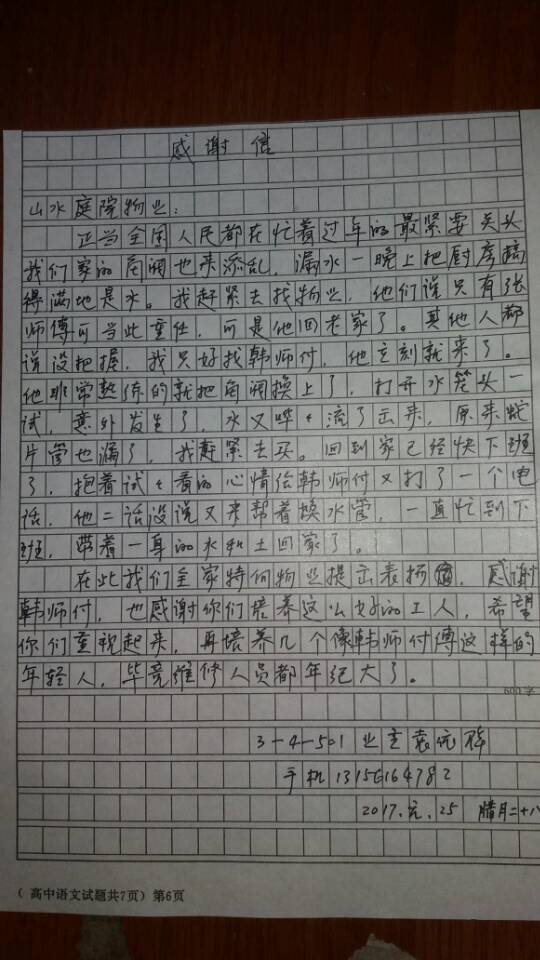 感谢信
山水庭院物业：
正当全国人民都在忙着过年的最紧要关头
我们家的角阀也来添乱，漏水一晚上把厨房搞
得满地是水。我赶紧去找物业，他们说只有张
师傅可当此重任，可是他回老家了。其他人都
说没把握，我只好找韩师付，他立刻就来了。
他非常熟练的就把角阀换上了，打开水笼头一
试，意外发生了，水又哗々流了出来，原来蛇
片管也漏了，我赶紧去买。回到家已经快下班
了，抱着试々看的心情给韩师付又打了一个电
话，他二话没说又来帮着换水管，一直忙到下
班，带着一身的水和土回家了。
在此我们全家特向物业提出表扬，感谢
韩师付，也感谢你们培养这么好的工人，希望
你们重视起来，再培养几个像韩师付傅这样的
年轻人，毕竟维修人员都年纪大了。
600字
3-4-501业主袁
手机13156164782
2017.元.25 腊月二十八
（高中语文试题共7页）第6页